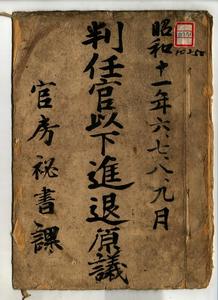 昭和十一年六、七、八、九月
判任官以下進退原議
官房秘書課